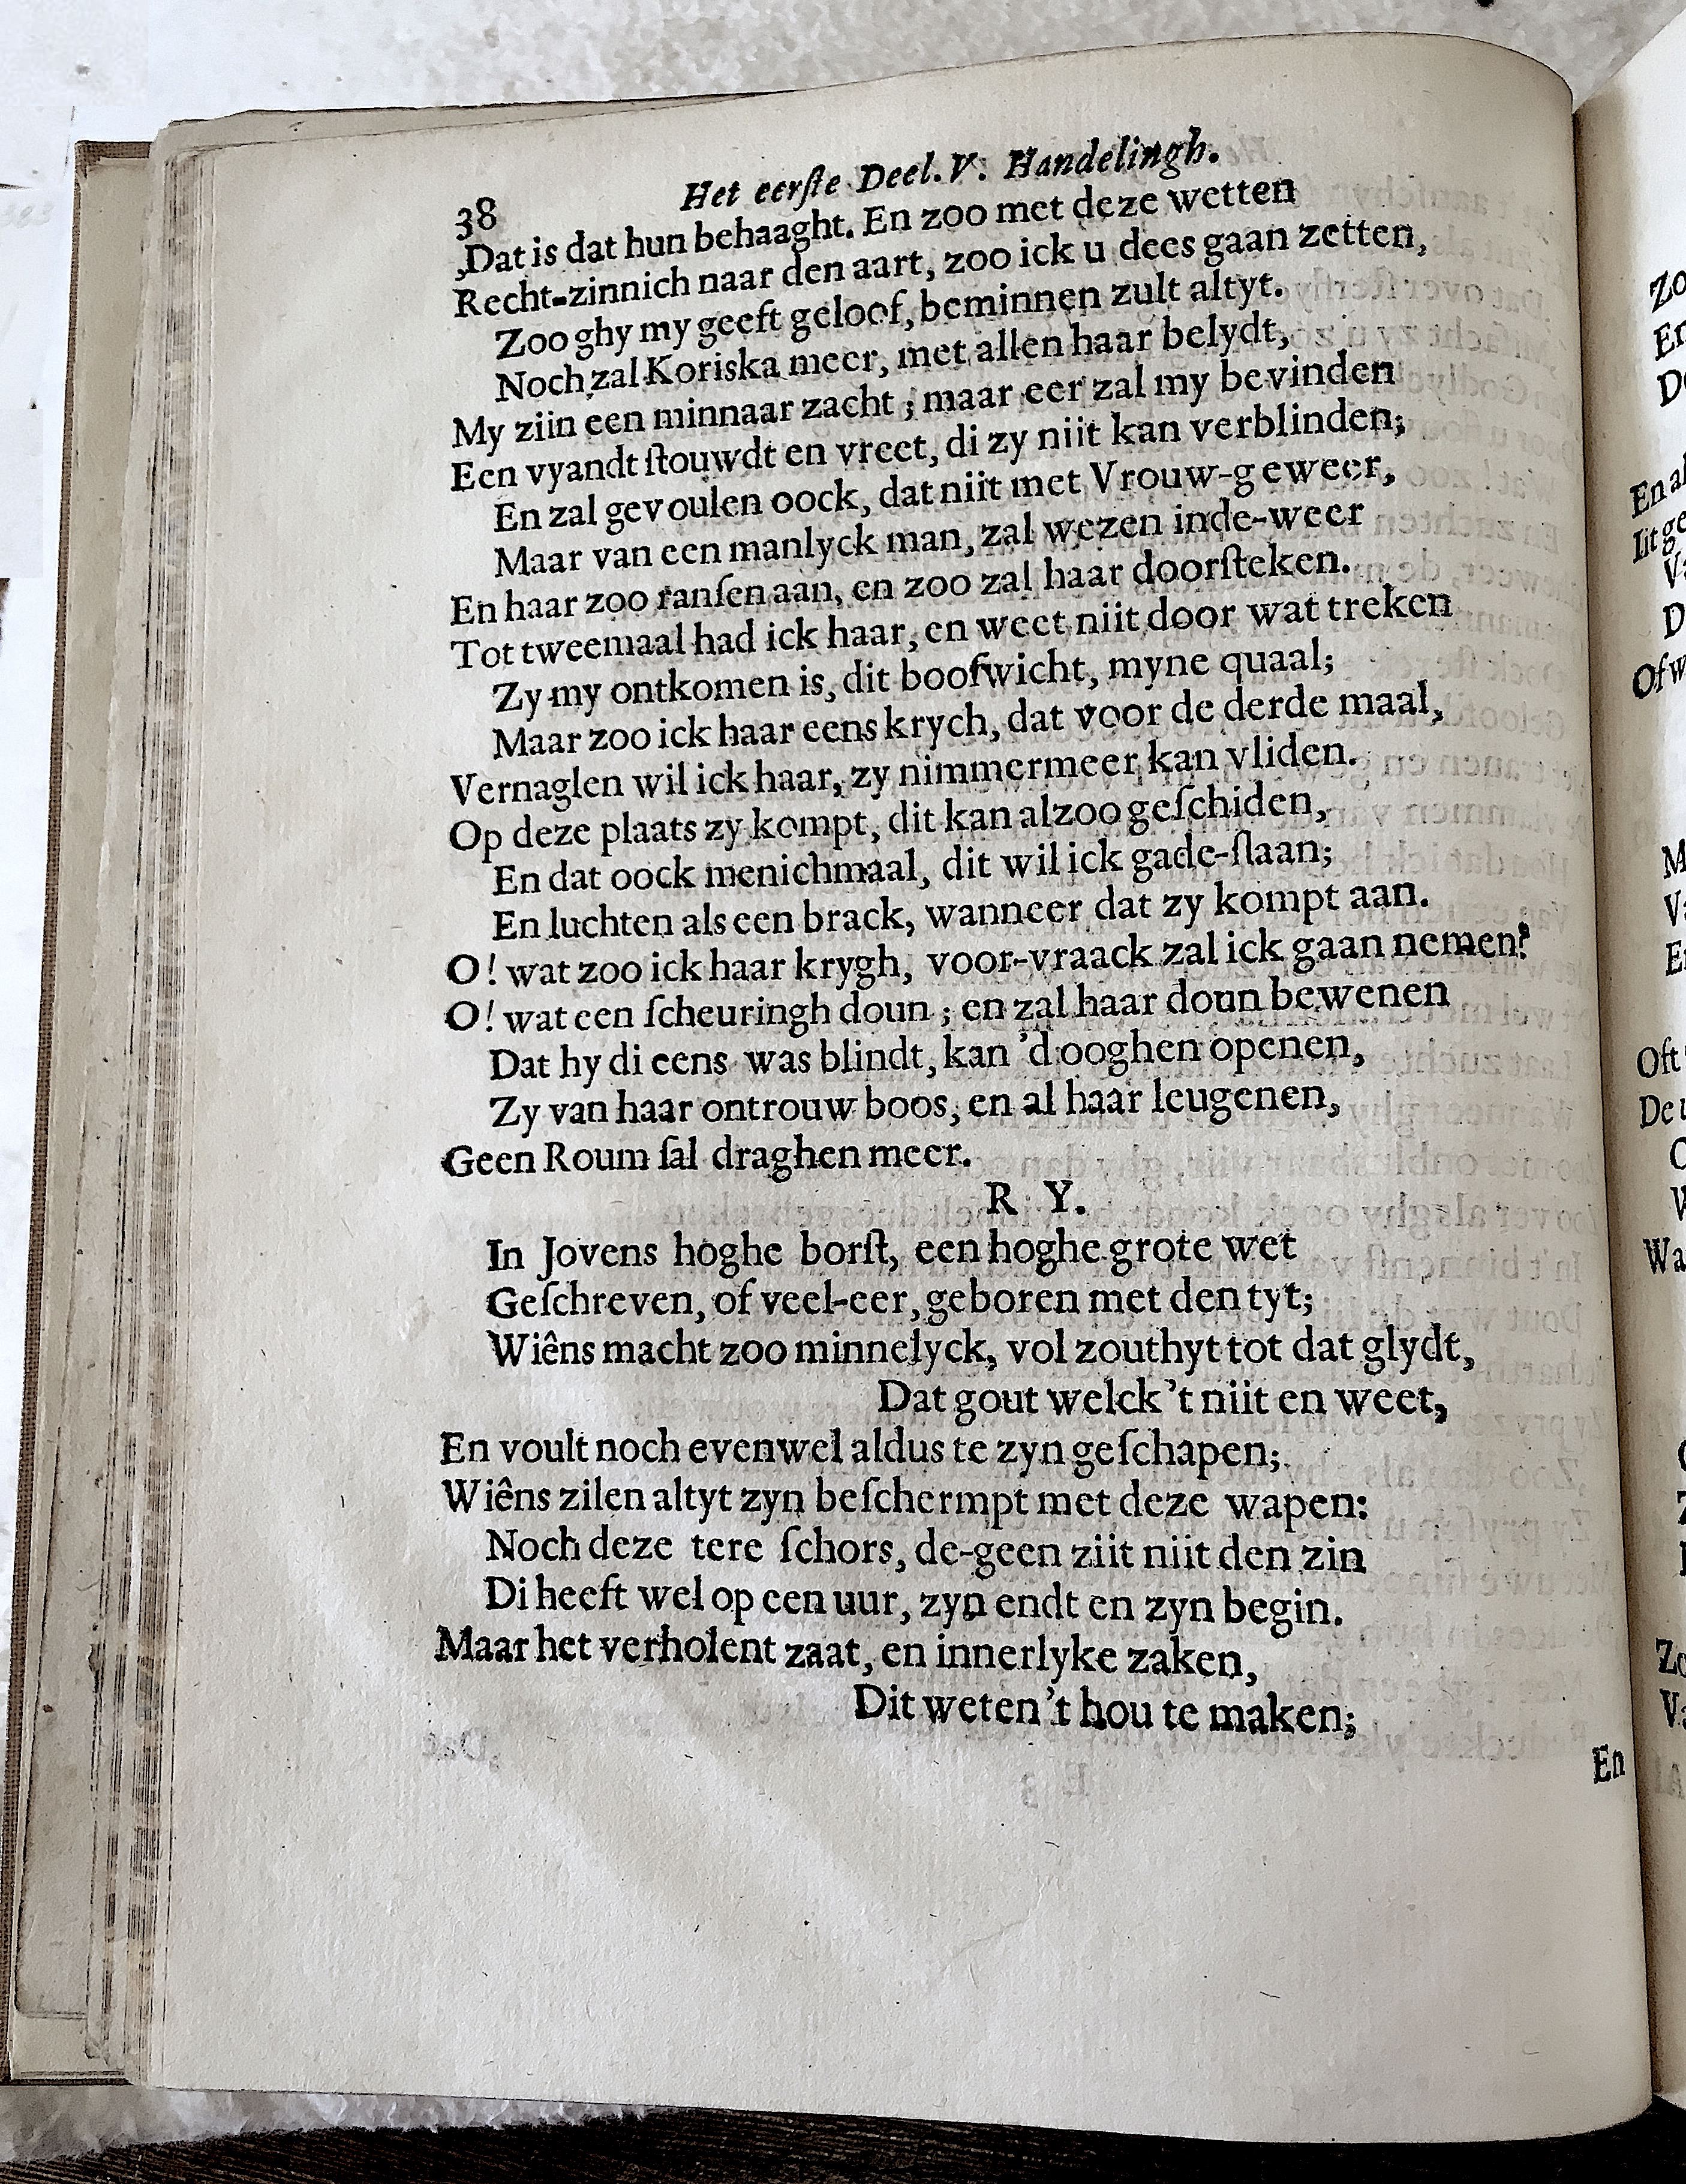 38 Het eerſte Deel. V. Handelingh.
,Dat is dat hun behaaght. En zoo met deze wetten
Recht-zinnich naar den aart, zoo ick u dees gaan zetten,
Zoo ghy my geeft geloof, beminnen zult altyt.
Noch zal Koriska meer, met allen haar belydt,
My ziin een minnaar zacht; maar eer zal my bevinden
Een vyandt ſtouwdt en vreet, di zy niit kan verblinden;
En zal gevoulen oock, dat niit met Vrouw-geweer,
Maar van een manlyck man, zal wezen inde-weer
En haar zoo ranſen aan, en zoo zal haar doorſteken.
Tot tweemaal had ick haar, en weet niit door wat treken
Zy my ontkomen is, dit boofwicht, myne quaal;
Maar zoo ick haar eens krych, dat voor de derde maal,
Vernaglen wil ick haar, zy nimmermeer kan vliden.
Op deze plaats zy kompt, dit kan alzoo geſchiden,
En dat oock menichmaal, dit wil ick gade-ſlaan;
En luchten als een brack, wanneer dat zy kompt aan.
O! wat zoo ick haar krygh, voor-vraack zal ick gaan nemen?
O! wat een ſcheuringh doun; en zal haar doun bewenen
Dat hy di eens was blindt, kan 'd ooghen openen,
Zy van haar ontrouw boos, en al haar leugenen,
Geen Roum ſal draghen meer.
R Y.
In Jovens hoghe borſt, een hoghe grote wet
Geſchreven, of veel-eer, geboren met den tyt;
Wiêns macht zoo minnelyck, vol zouthyt tot dat glydt,
Dat gout welck 't niit en weet,
En voult noch evenwel aldus te zyn geſchapen;
Wiêns zilen altyt zyn beſchermpt met deze wapen:
Noch deze tere ſchors, de-geen ziit niit den zin
Di heeft wel op een uur, zyn endt en zyn begin.
Maar het verholent zaat, en innerlyke zaken,
Dit weten 't hou te maken;
En